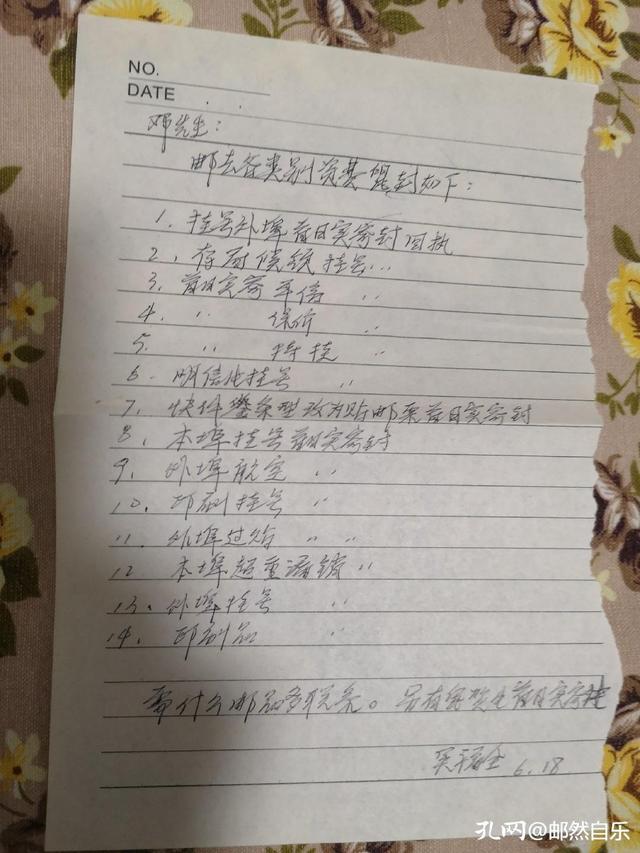 NO.
DATE
邓先生：
邮去各类别资费实封如下：
1. 挂号外埠首日实寄封回执
2. 存局候领挂号…
3. 首日实寄平信 〃
4. 〃 保价 〃
5. 〃 特挂 〃
6. 明信片挂号 〃
7. 快件签条型改为贴邮票首日实寄封
8. 本埠挂号首日实寄封
9. 外埠航空 〃
10. 印刷挂号 〃
11. 外埠过 〃 〃
12. 本埠超重 〃
13. 外埠挂号 〃
14. 印刷品 〃
需什么邮品多联系。另有 首日实寄
6.18
孔网@邮然自乐